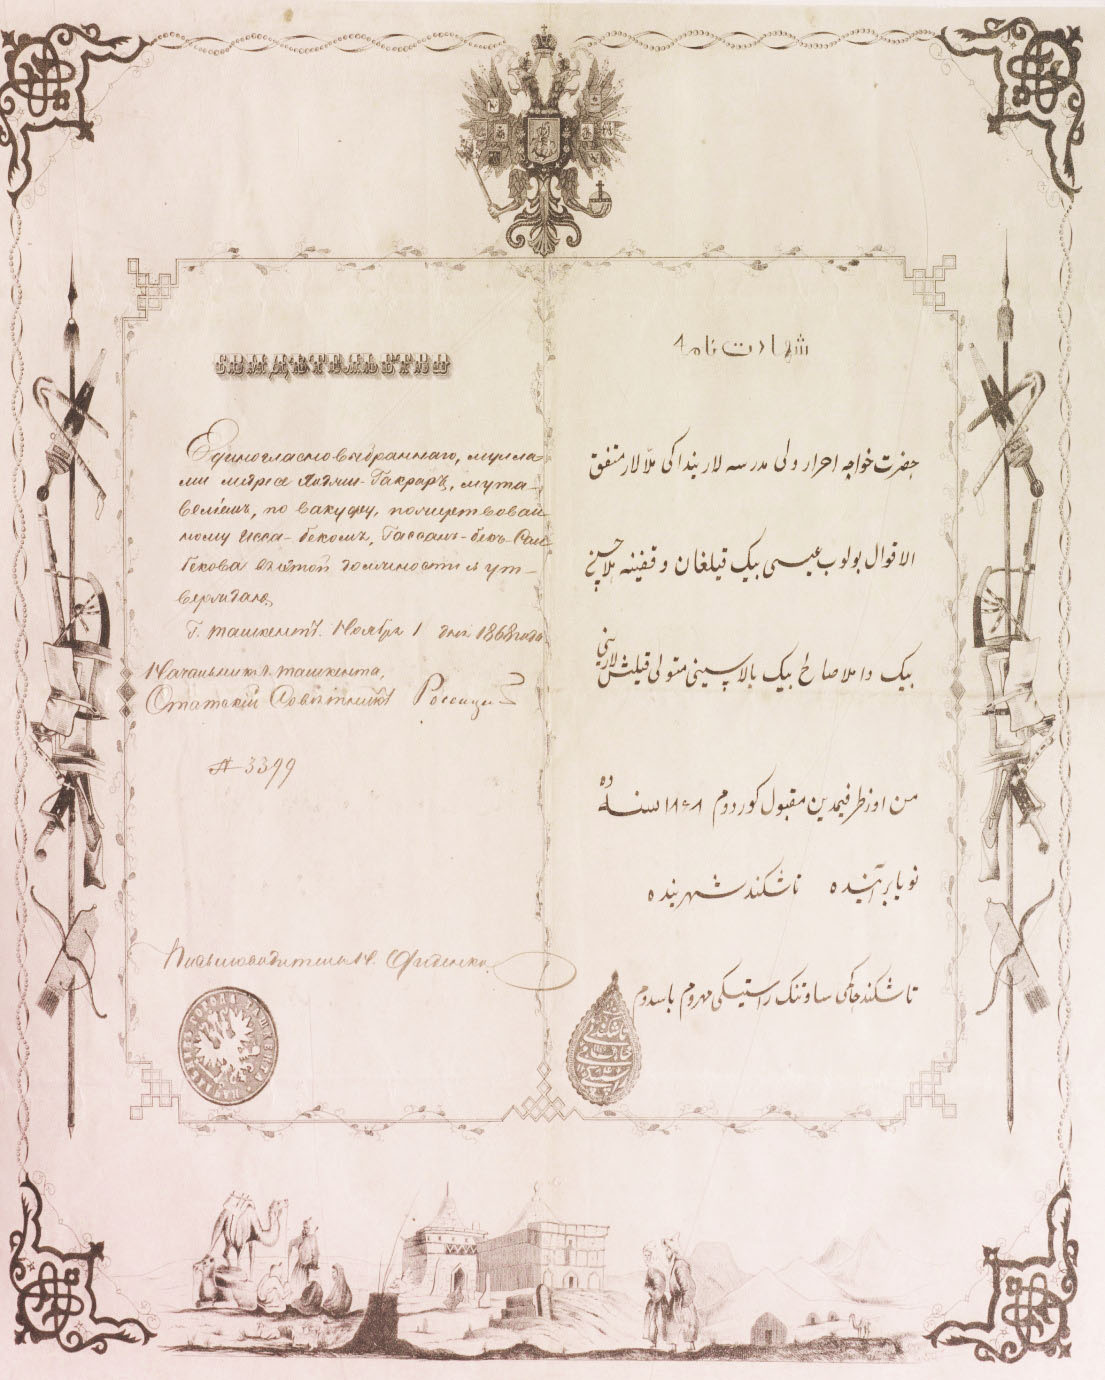 СВИДѢТЕЛЬСТВО
Единогласно выбраннаго, мулла-
ми медресе Ходжи-Гакраръ, мута-
веліемъ, по вакуфу, пожертвован-
ному Исса-бекомъ, Гассанъ-бек Саи
бекова въ этой должности я ут-
верждаю
Г. Ташкентъ. Ноября 1 дня 1868 года
Начальникъ г. Ташкента,
Статскій Совѣтникъ
№ 3399
Письмоводитель
شهادت نامه
حضرت خواجه احرار ولی مدرسه لاریندا کی ملّا لار متفق
الاقوال بولوب عیسی بیک قیلغان وقفینه ملا حسن
بیک داملا صالح بیک بالاسینی متولی قیلیش لارینی
من اوز طرفیمدین مقبول کوردوم ۱۸۶۸ سنه ده
نویابر آینده تاشکند شهرینده
تاشکند حاکمی ساوتنک راستیسکی مهروم باسدوم